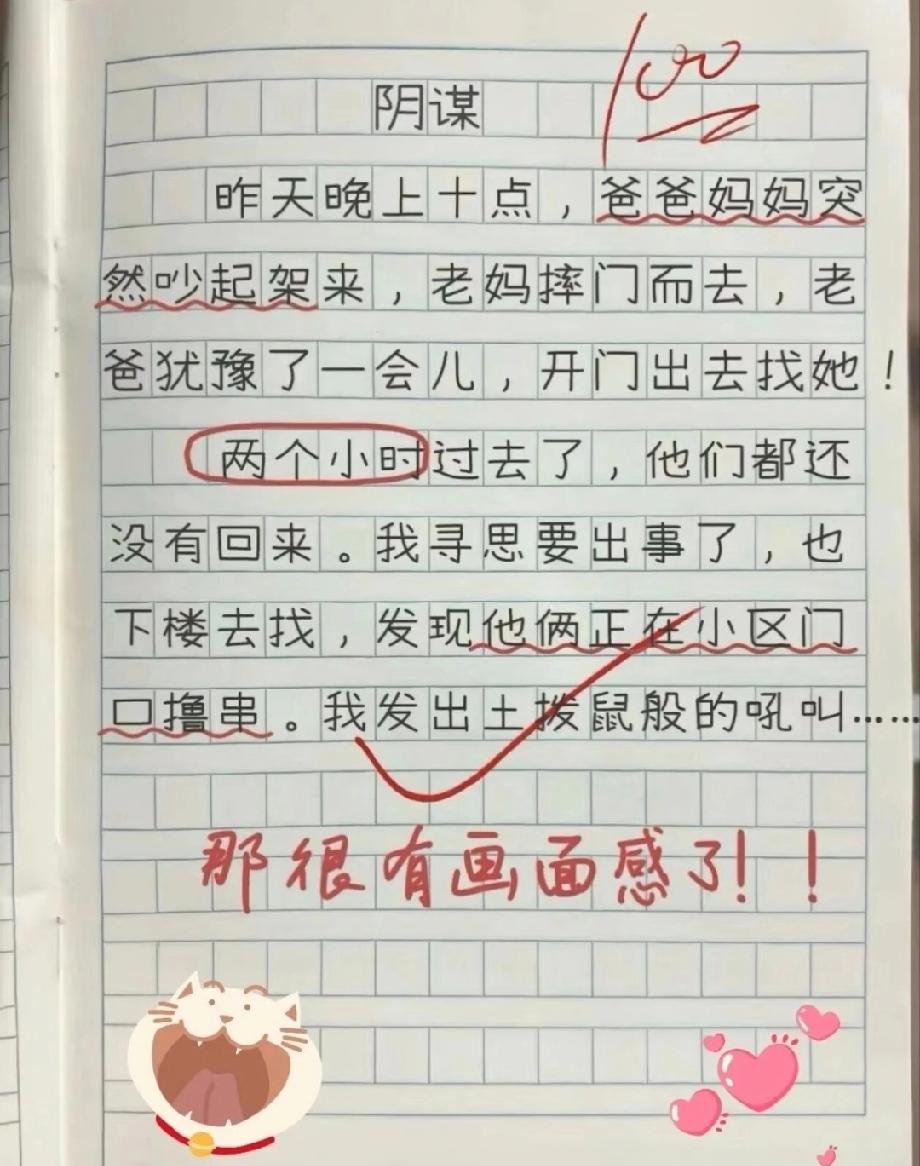 100
阴谋
昨天晚上十点，爸爸妈妈突
然吵起架来，老妈摔门而去，老
爸犹豫了一会儿，开门出去找她！
两个小时过去了，他们都还
没有回来。我寻思要出事了，也
下楼去找，发现他俩正在小区门
口撸串。我发出土拨鼠般的吼叫……
那很有画面感了！！